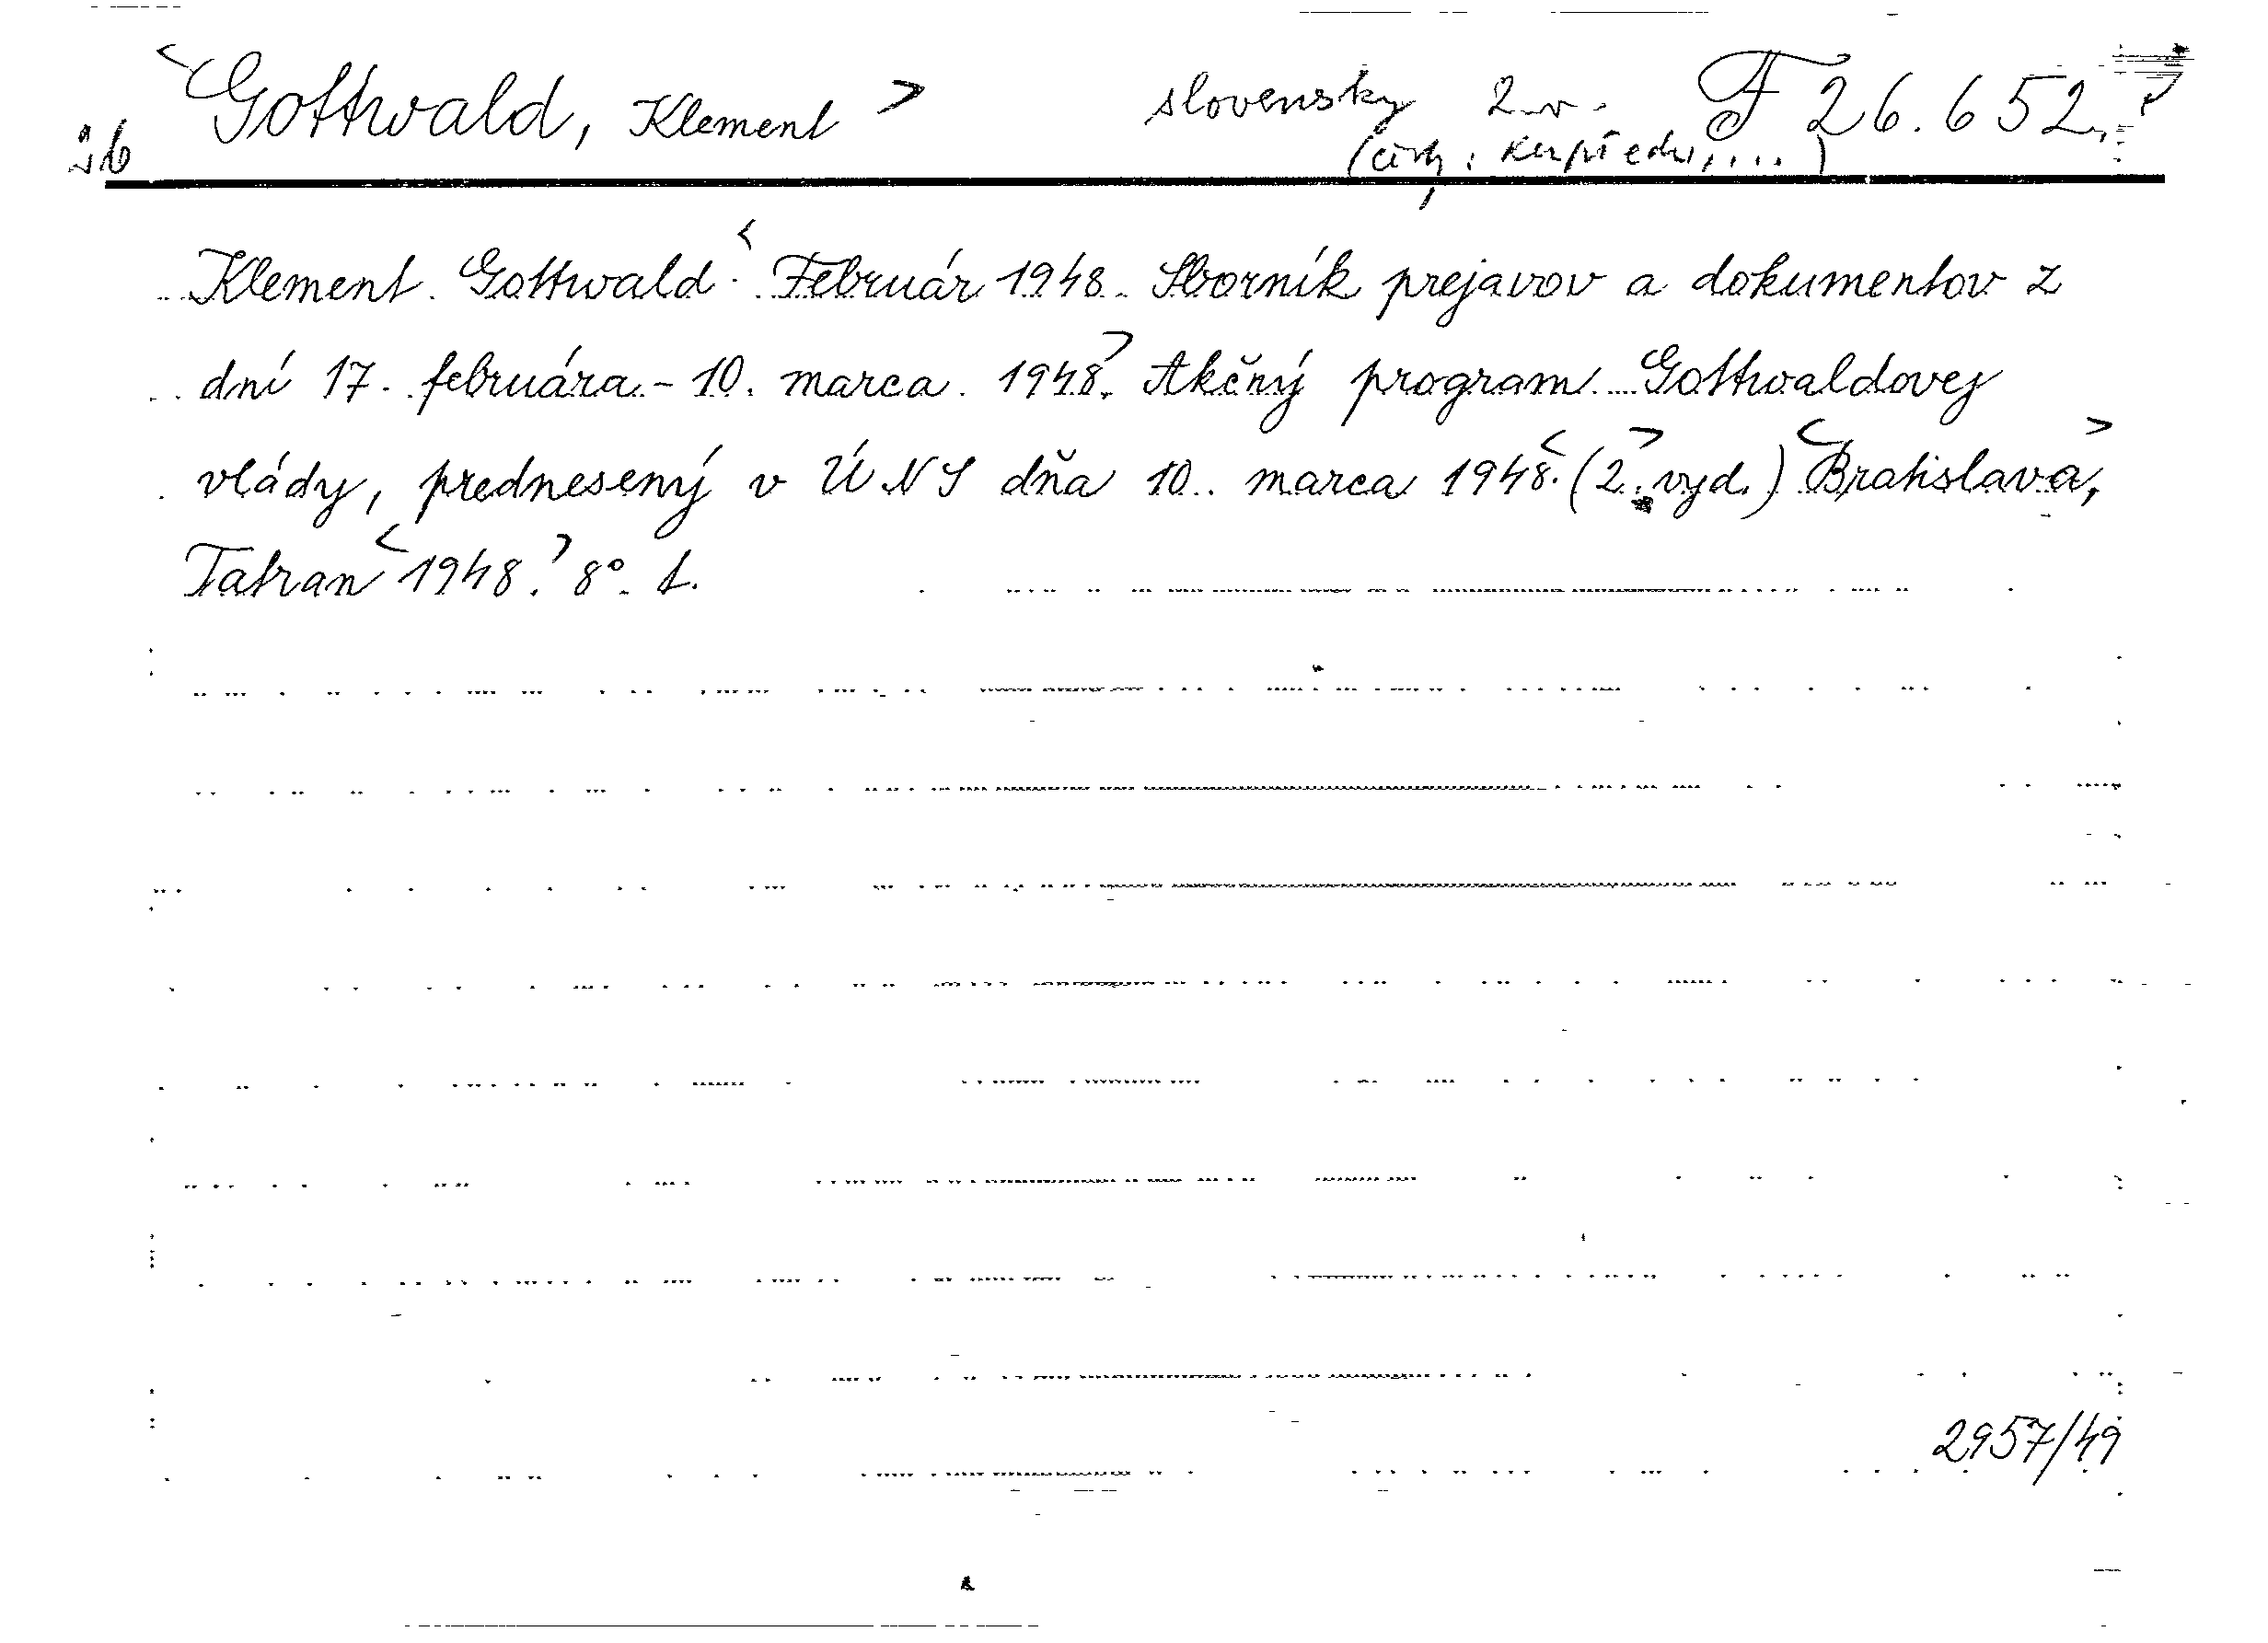 Gottwald, Klement slovensky 2.v. F 26.652
Klement Gottwald: Február 1948. Sborník prejavov a dokumentov z
dní 17. februára - 10. marca 1948. Akčný program Gottwaldovej
vlády, prednesený v ÚNS dňa 10. marca 1948. (2. vyd.) Bratislava,
Tatran 1948. 8°. t.
2957/49